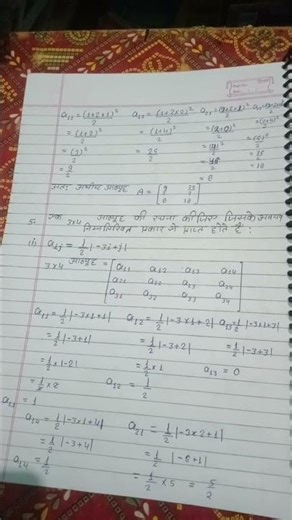 a₁₁ = (1+2×1)²/2   a₁₂ = (1+2×2)²/2   a₂₁ = (2+2×1)²/2
= (1+2)²/2   = (1+4)²/2   = (2+2)²/2
= (3)²/2   = 25/2   = (4)²/2
= 9/2
= 8
अतः अभीष्ट आव्यूह A =
5. एक 3×4 आव्यूह की रचना कीजिए जिसके अवयव
निम्नलिखित प्रकार से प्राप्त होते हैं :
(i) aᵢⱼ = 1/2 |-3i+j|
3×4 आव्यूह = [ a₁₁ a₁₂ a₁₃ a₁₄
a₂₁ a₂₂ a₂₃ a₂₄
a₃₁ a₃₂ a₃₃ a₃₄ ]
a₁₁ = 1/2 |-3×1+1|   a₁₂ = 1/2 |-3×1+2|   a₁₃ = 1/2 |-3×1+3|
= 1/2 |-3+1|   = 1/2 |-3+2|   = 1/2 |-3+3|
= 1/2 × |-2|   = 1/2 × 1   a₁₃ = 0
= 1/2 × 2   a₁₂ = 1/2
a₁₁ = 1
a₁₄ = 1/2 |-3×1+4|   a₂₁ = 1/2 |-3×2+1|
= 1/2 |-3+4|   = 1/2 |-6+1|
a₁₄ = 1/2   = 1/2 × 5 = 5/2